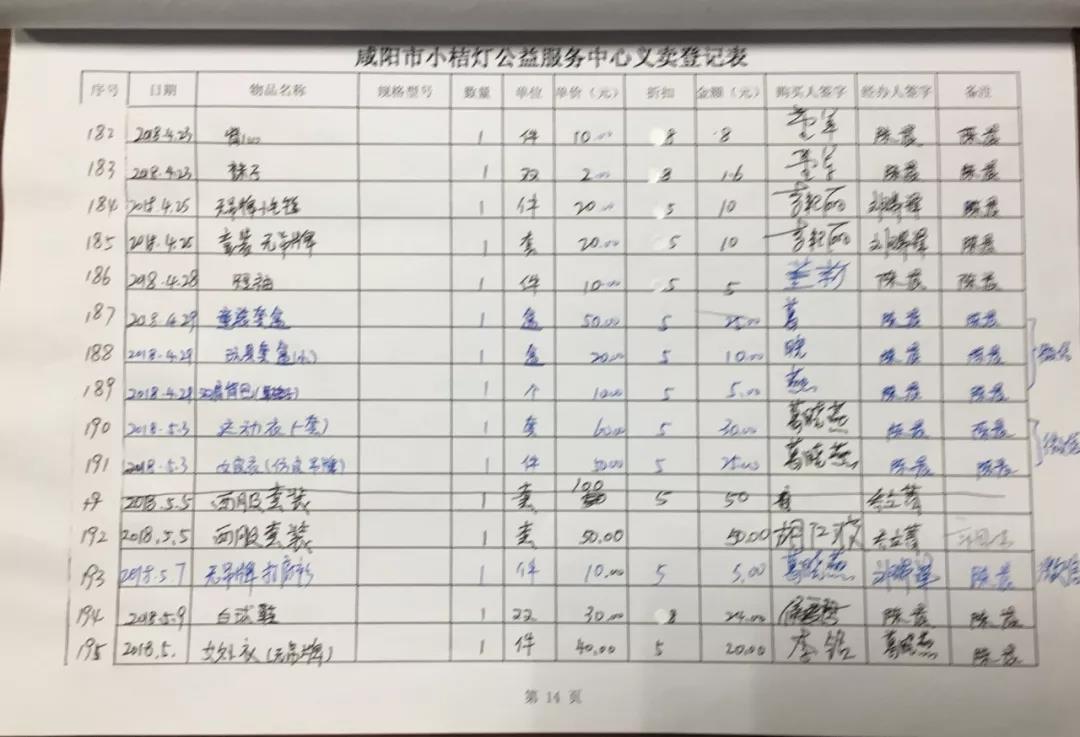 咸阳市小桔灯公益服务中心义卖登记表
序号 日期 物品名称 规格型号 数量 单位 单价（元） 折扣 金额（元） 购买人签字 经办人签字 备注
182 2018.4.23 1 件 10.00 8 8 陈蕊 陈蕊
183 2018.4.23 袜子 1 双 2.00 8 1.6 陈蕊 陈蕊
184 2018.4.25 无吊牌 1 件 20.00 5 10 陈蕊
185 2018.4.25 童装 无吊牌 1 套 20.00 5 10 陈蕊
186 2018.4.28 短袖 1 件 10.00 5 5 陈蕊 陈蕊
187 2018.4.29 套盒 1 盒 50.00 5 25.00 葛 陈蕊 陈蕊
188 2018.4.29 玩具套盒(小) 1 盒 20.00 5 10.00 晓 陈蕊 陈蕊 微信
189 2018.4.29 背包 1 个 10.00 5 5.00 燕 陈蕊 陈蕊
190 2018.5.3 运动衣(一套) 1 套 60.00 5 30.00 葛晓燕 陈蕊 陈蕊 微信
191 2018.5.3 1 件 50.00 5 25.00 葛晓燕 陈蕊 陈蕊
2018.5.5 西服套装 1 套 100 5 50
192 2018.5.5 西服套装 1 套 50.00 50.00 胡江波
193 2018.5.7 无吊牌 打底衫 1 件 10.00 5 5.00 葛晓燕 陈蕊 微信
194 2018.5.9 白球鞋 1 双 30.00 8 24.00 陈蕊 陈蕊
195 2018.5. 女外衣(无吊牌) 1 件 40.00 5 20.00 李铭 葛晓燕 陈蕊
第 14 页